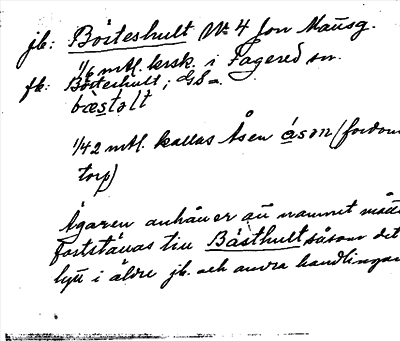 jb: Bösteshult No 4 Jon Månsg.
1/6 mtl. krsk. i Fagered sn.
fk: Bösteshult; GS=.
bæstolt
1/42 mtl. kallas Åsen åsən (fordom
torp)
Ägaren anhåller att namnet måtte
fastställas till Båsthult såsom det
lytt i äldre jb. och andra handlingar